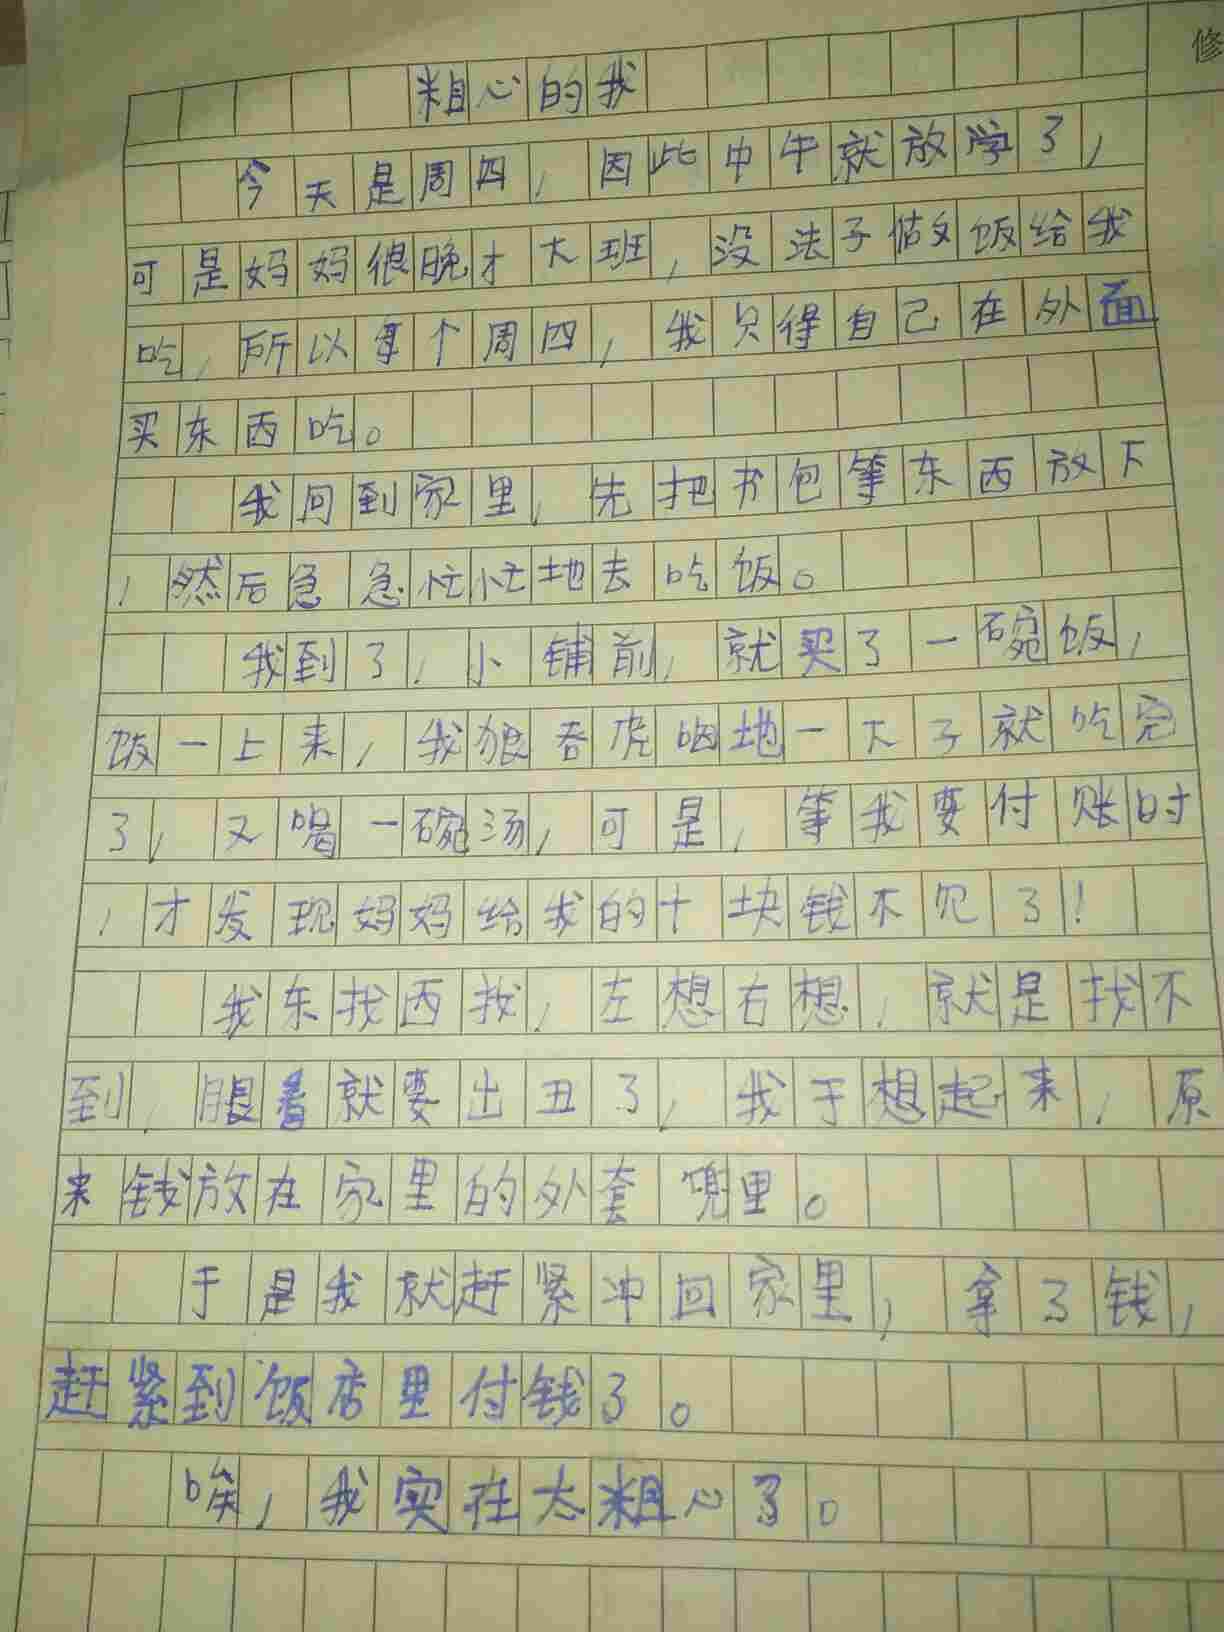 粗心的我
今天是周四，因此中午就放学了，
可是妈妈很晚才下班，没法子做饭给我
吃，所以每个周四，我只得自己在外面
买东西吃。
我回到家里，先把书包等东西放下
，然后急急忙忙地去吃饭。
我到了，小铺前，就买了一碗饭，
饭一上来，我狼吞虎咽地一下子就吃完
了，又喝一碗汤，可是，等我要付账时
，才发现妈妈给我的十块钱不见了！
我东找西找，左想右想，就是找不
到，眼看就要出丑了，我于想起来，原
来钱放在家里的外套兜里。
于是我就赶紧冲回家里，拿了钱，
赶紧到饭店里付钱了。
唉，我实在太粗心了。
修